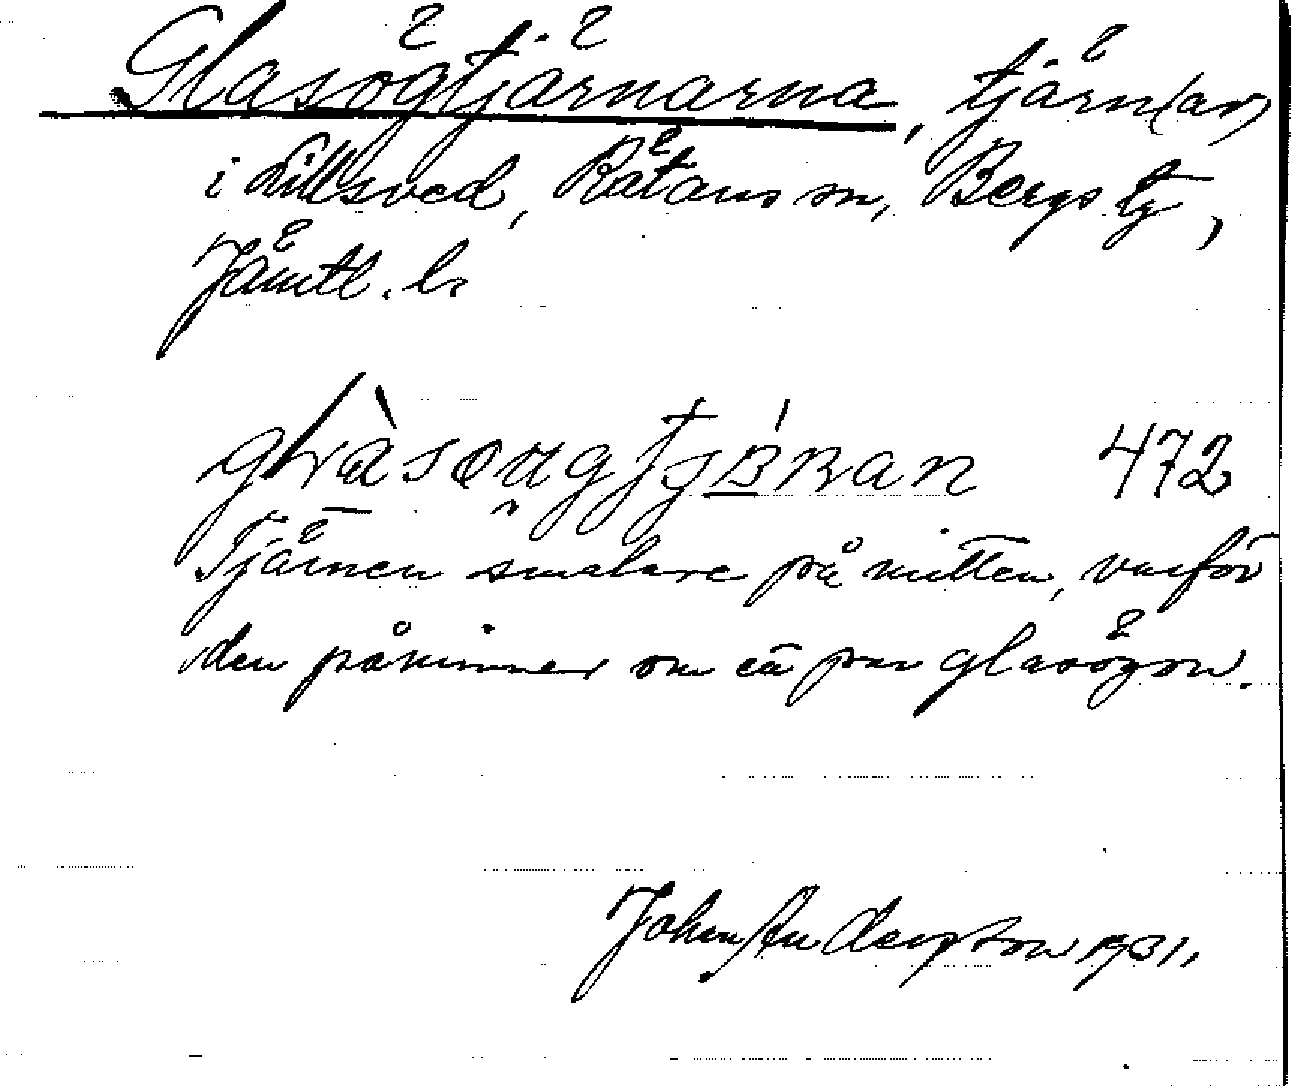 Glasögtjärnarna, tjärn(ar)
i Lillsved, Rätans sn, Bergs tg,
Jämtl. l.
472
Tjärnen smalare på mitten, varför
den påminner om ett par glasögon.
Johan Andersson 1931.